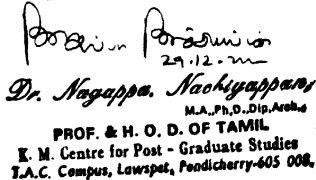 29.12.
Dr. Nagappa. Nachiyappan,
M.A., Ph,D., Dip, Arch.,
PROF. & H. O. D. OF TAMIL
K. M. Centre for Post - Graduate Studies
T.A.C. Campus, Lawspet, Pondicherry-605 008.